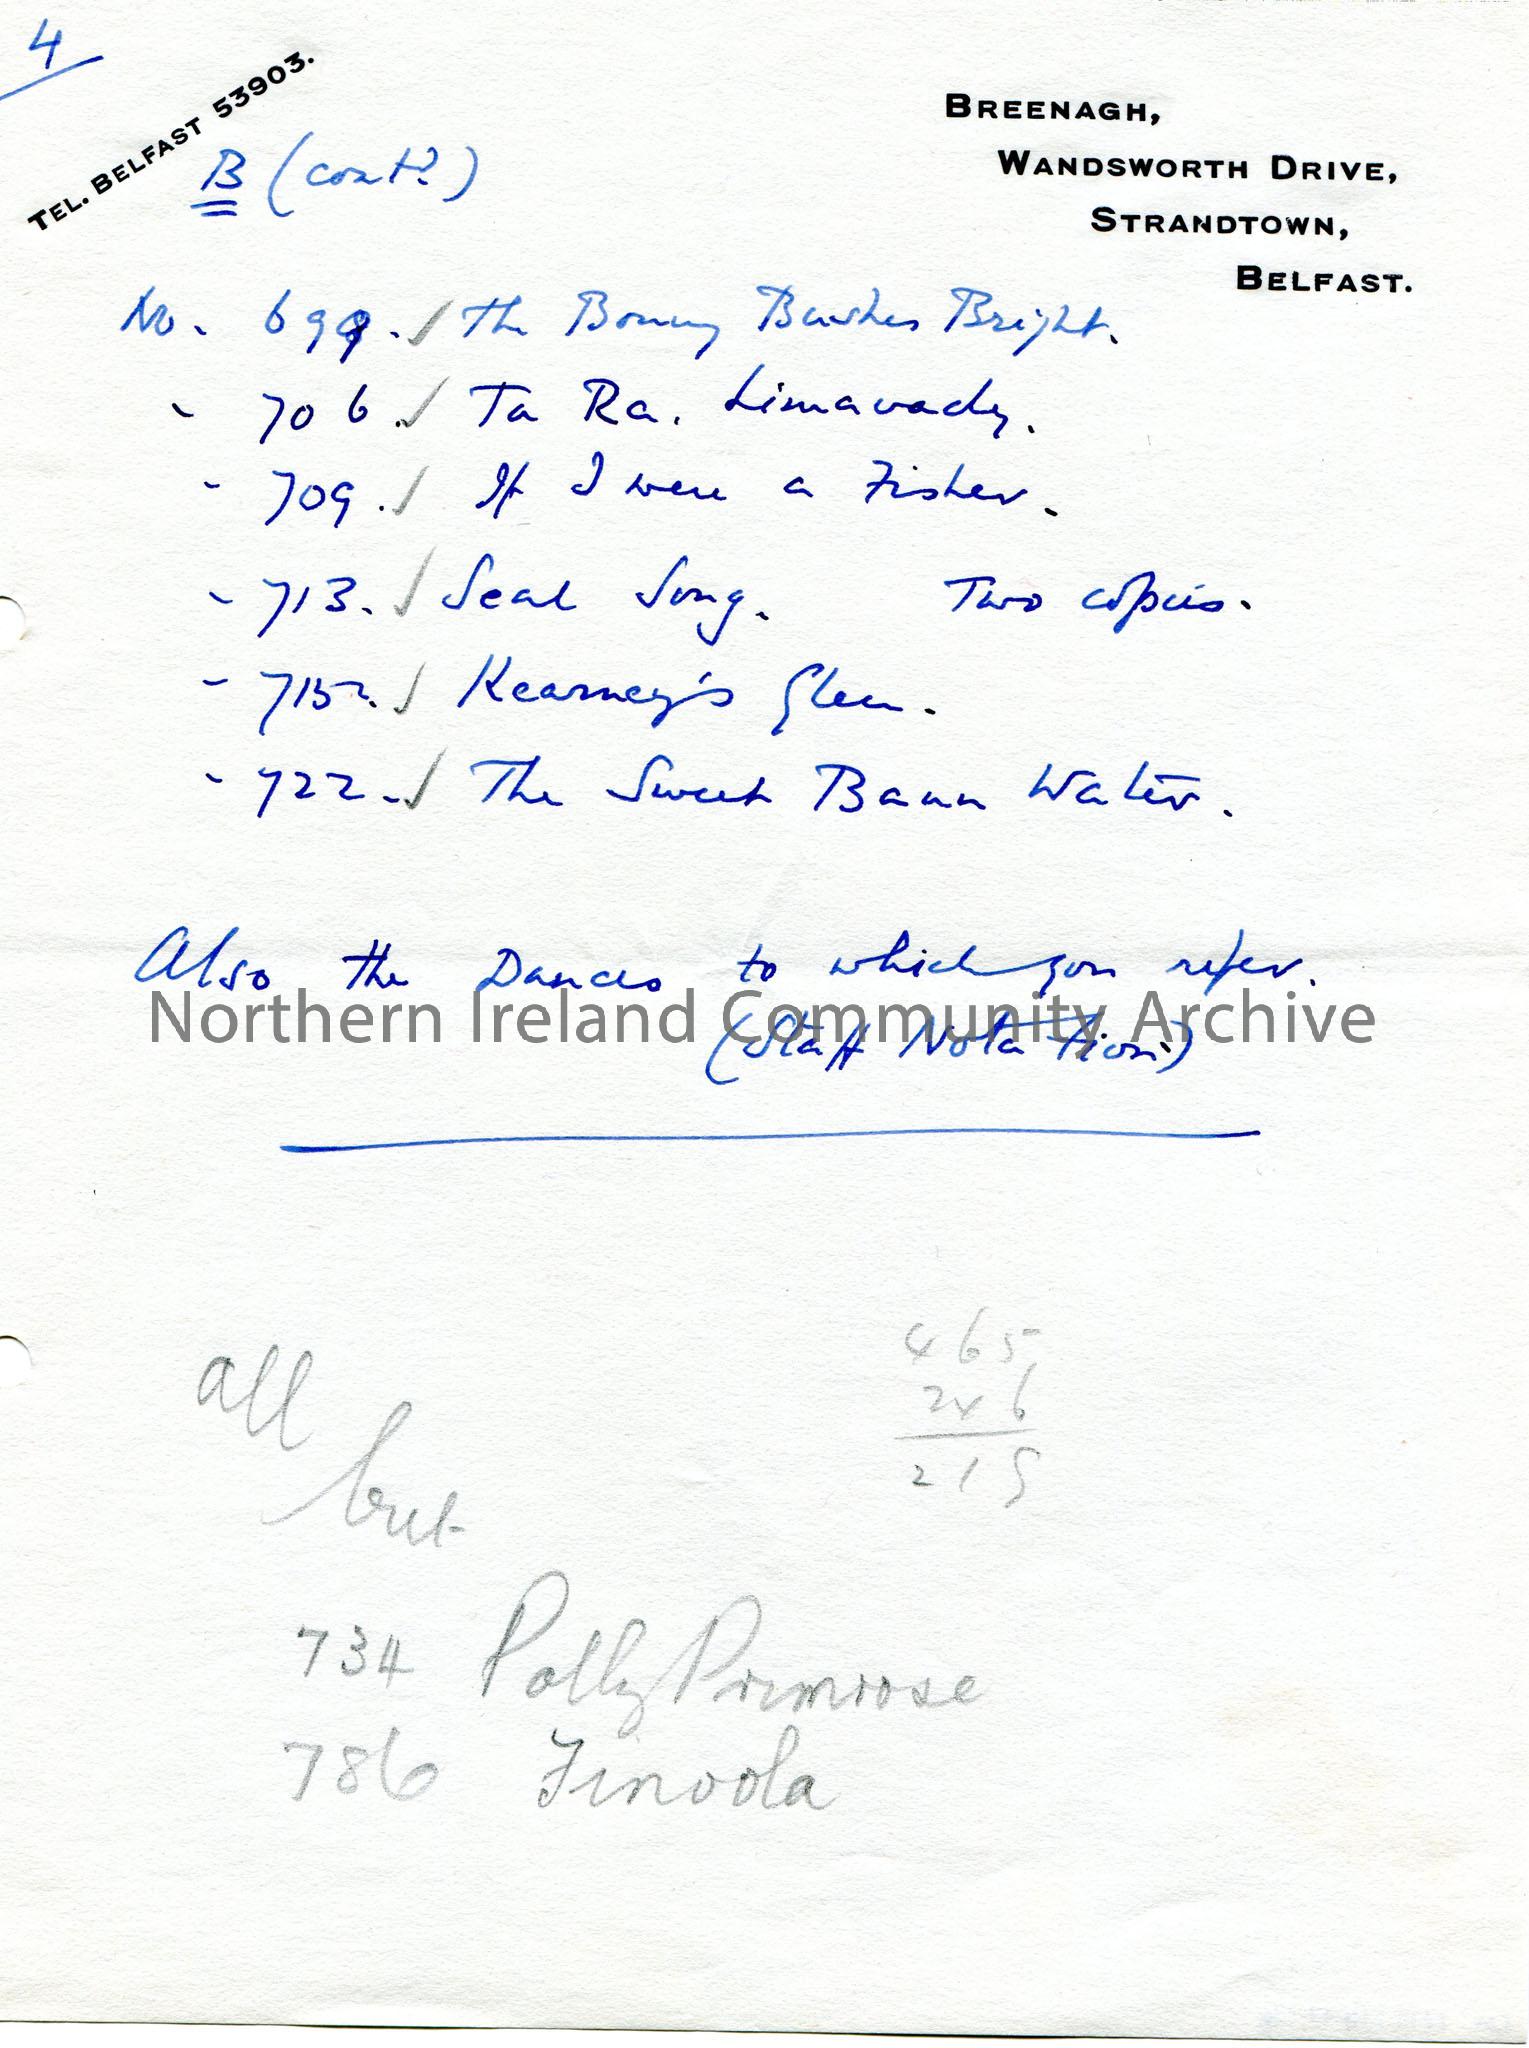 4
TEL. BELFAST 53903.
BREENAGH,
WANDSWORTH DRIVE,
STRANDTOWN,
BELFAST.
B (contd.)
No. 699. ✓ The Bonny Bushes Bright.
" 706. ✓ Ta Ra. Limavady.
" 709. ✓ If I were a Fisher.
" 713. ✓ Seal Song. Two copies.
" 715. ✓ Kearney's Glen.
" 722. ✓ The Sweet Bann Water.
Also the Dances to which you refer.
(Staff Notation.)
Northern Ireland Community Archive
465
246
215
all
but
734 Polly Primrose
786 Finoola